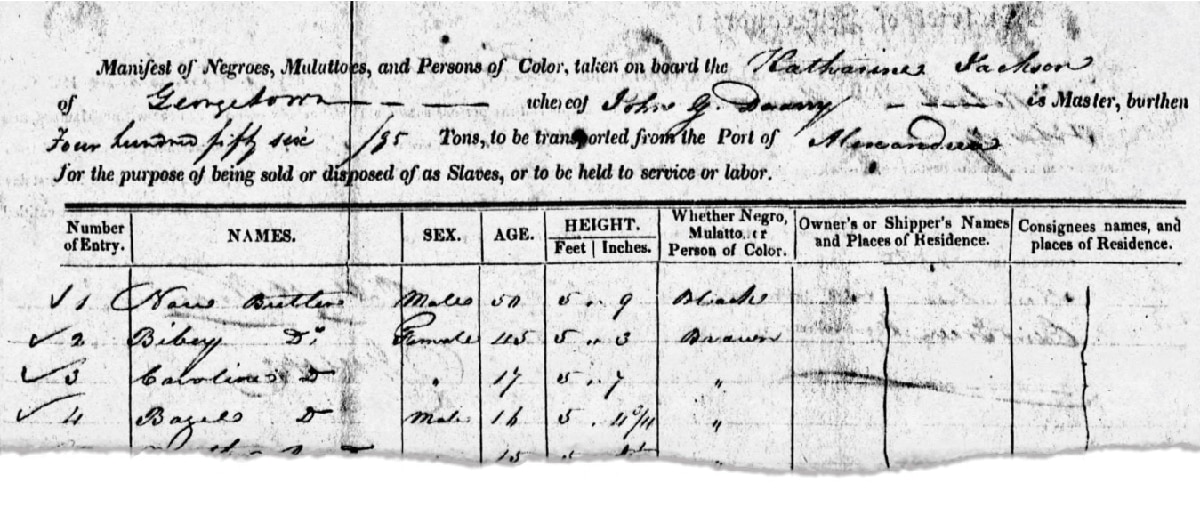 Manifest of Negroes, Mulattoes, and Persons of Color, taken on board the Katharine Jackson
of Georgetown whereof John G. is Master, burthen
Four hundred fifty six /95 Tons, to be transported from the Port of Alexandria
for the purpose of being sold or disposed of as Slaves, or to be held to service or labor.
Number of Entry. NAMES. SEX. AGE. HEIGHT. Feet Inches. Whether Negro, Mulatto, or Person of Color. Owner's or Shipper's Names and Places of Residence. Consignees names, and places of Residence.
✓ 1 Nace Butler Male 50 5 " 9 Black
✓ 2 Bibey Do Female 45 5 " 3 Brown
✓ 3 Caroline D " 17 5 " 7 "
✓ 4 Bazel D Male 16 5 " "
15